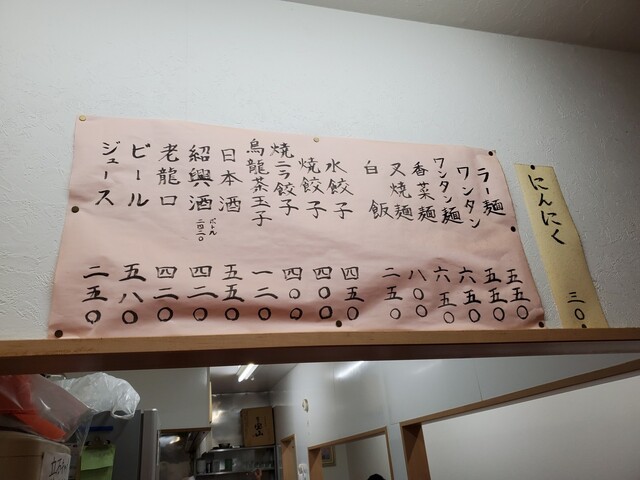 にんにく 三〇
ラー麺 五五〇
ワンタン 五五〇
ワンタン麺 六五〇
香菜麺 六五〇
叉焼麺 八〇〇
白飯 二五〇
水餃子 四五〇
焼餃子 四〇〇
焼ニラ餃子 四〇〇
烏龍茶玉子 一二〇
日本酒 五五〇
紹興酒 四二〇
老龍口 四二〇
ビール 五八〇
ジュース 二五〇